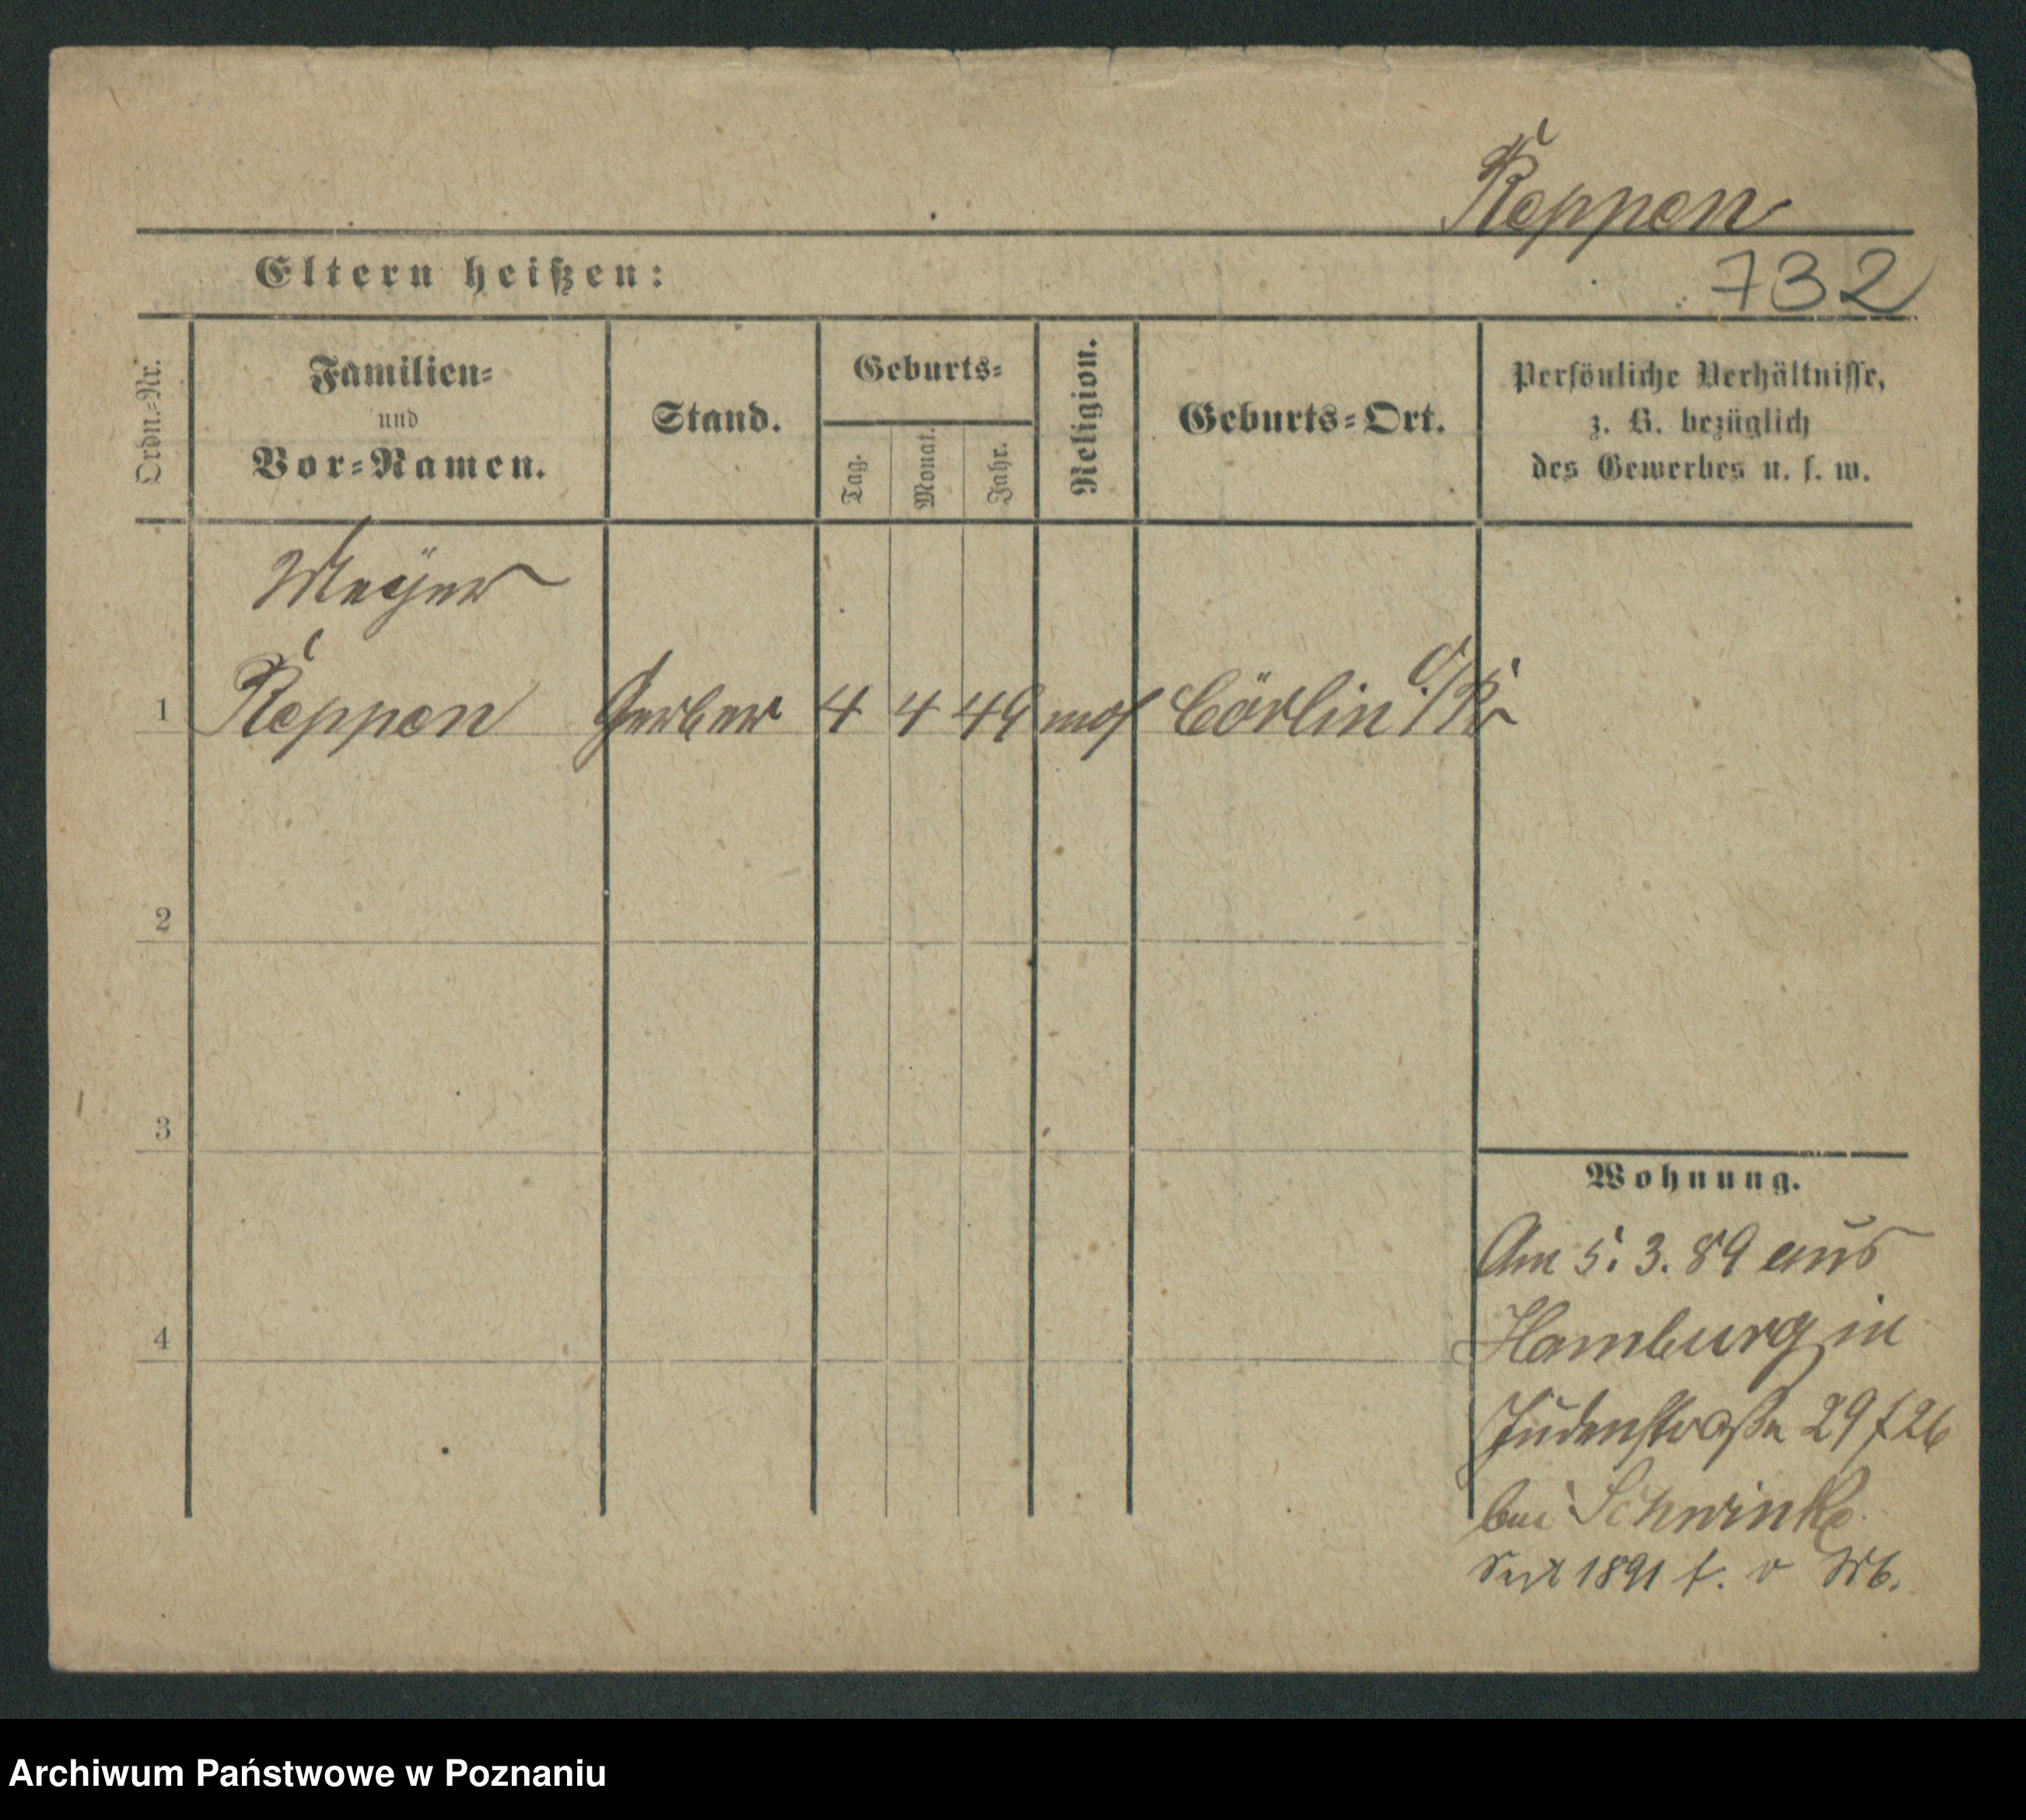 Keppen
Eltern heißen:
732
Ordn.-Nr.
Familien-
und
Vor-Namen.
Stand.
Geburts-
Tag.
Monat.
Jahr.
Religion.
Geburts-Ort.
Persönliche Verhältnisse,
z. B. bezüglich
des Gewerbes u. s. w.
Meyer
1 Keppen Gerber 4 4 49 mos Cörlin
2
3
4
Wohnung.
Am 5. 3. 89 aus
Hamburg in
Judenstraße 29 / 26
bei Schwinke
Seit 1891
Archiwum Państwowe w Poznaniu